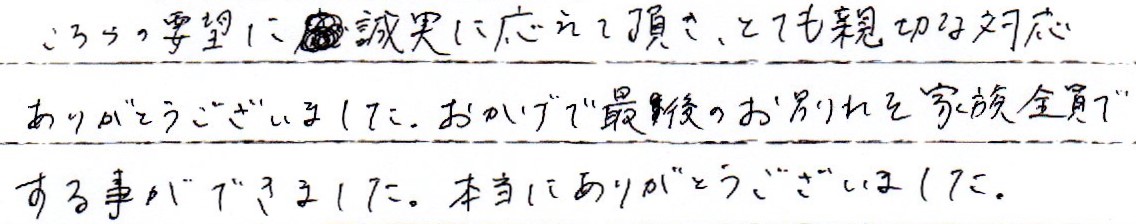 こちらの要望に誠実に応えて頂き、とても親切な対応
ありがとうございました。おかげで最後のお別れを家族全員で
する事ができました。本当にありがとうございました。